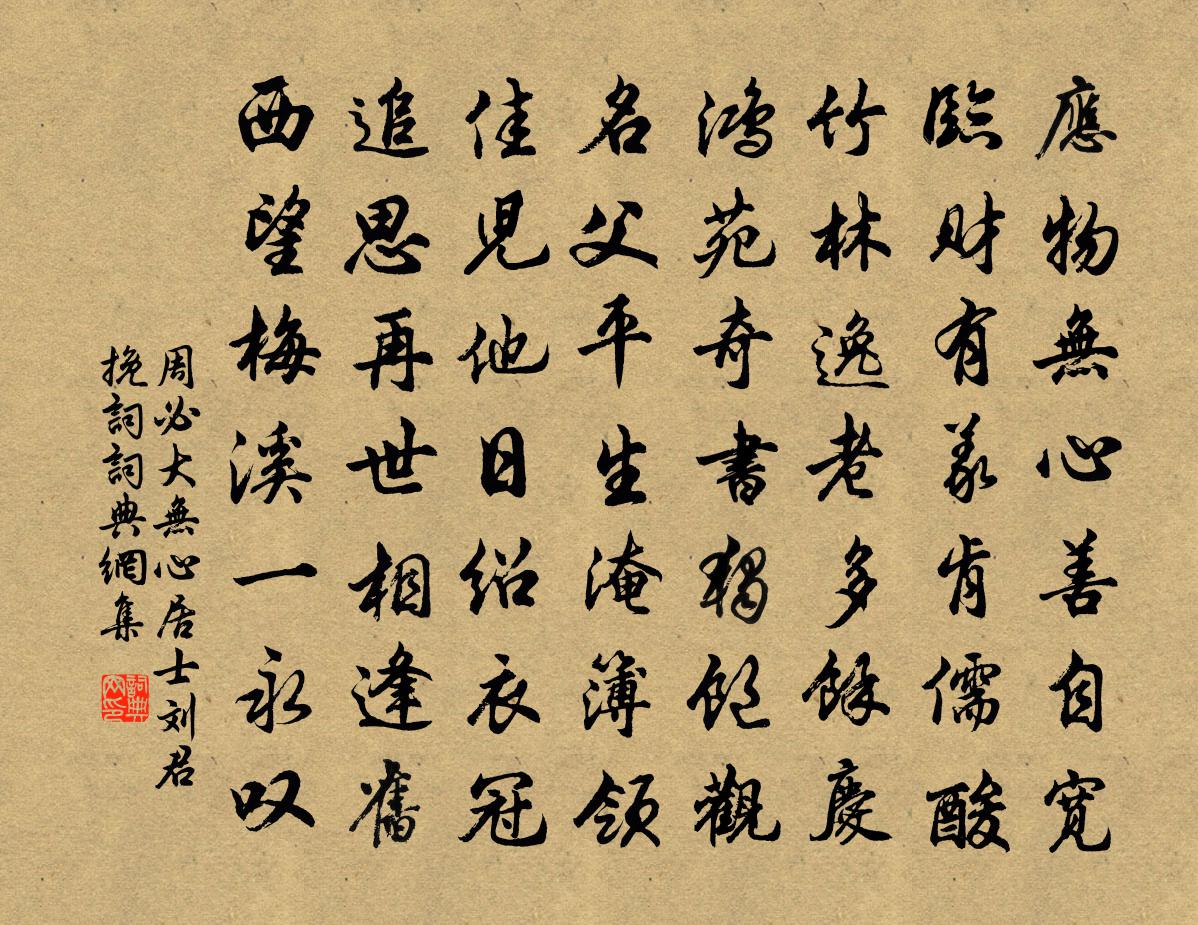 應物無心善自寬
臨財有義肯儒酸
竹林逸老多餘慶
鴻苑奇書獨飽觀
名父平生淹簿領
佳兒他日紹衣冠
追思再世相逢舊
西望梅溪一永叹
周必大無心居士刘君
挽詞詞典網集
詞典網印